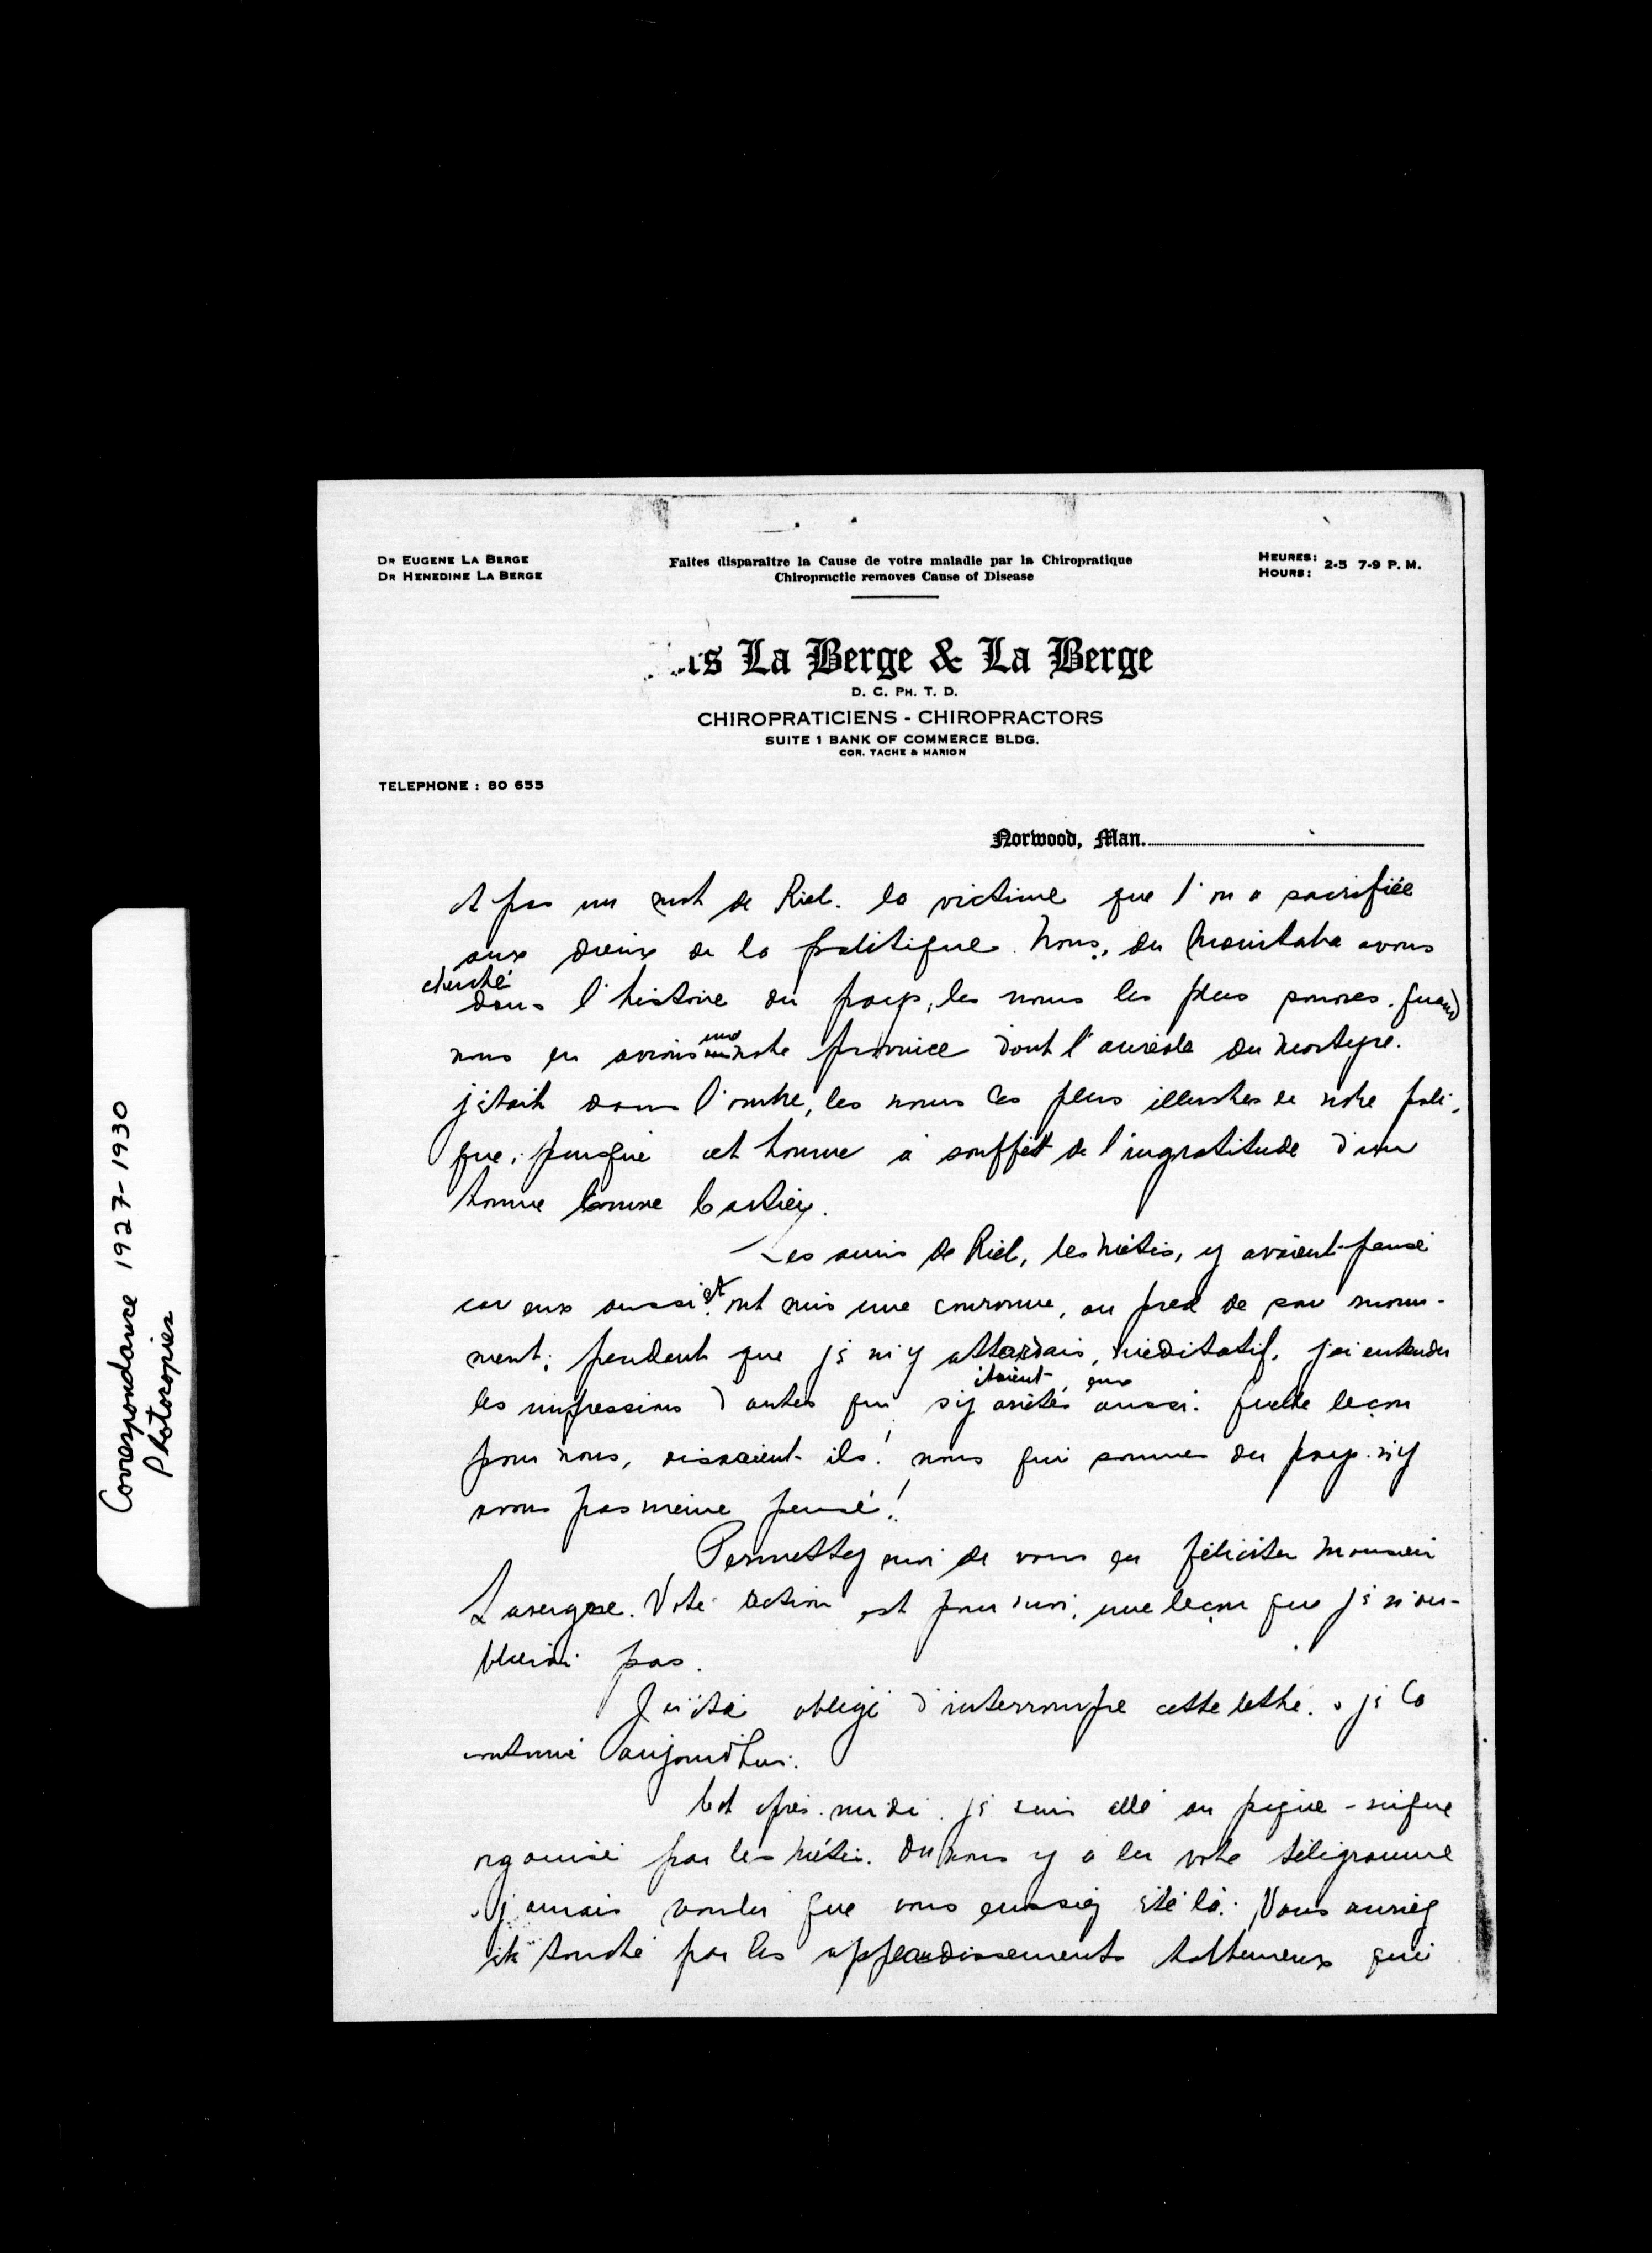 Correspondance 1927-1930
Photocopies
DR EUGENE LA BERGE
DR HENEDINE LA BERGE
Faites disparaitre la Cause de votre maladie par la Chiropratique
Chiropractic removes Cause of Disease
HEURES:
HOURS: 2-5 7-9 P. M.
rs La Berge & La Berge
D. C. PH. T. D.
CHIROPRATICIENS - CHIROPRACTORS
SUITE 1 BANK OF COMMERCE BLDG.
COR. TACHE & MARION
TELEPHONE : 80 655
Norwood, Man.
et pas un mot de Riel. la victime que l'on a sacrifiée
aux dieux de la politique. Nous, du Manitoba avons
cherché
dans l'histoire du pays, les noms les plus sonores. quand
nous en avions un notre province dont l'auréole du martyre.
jetait dans l'ombre, les noms les plus illustres de notre poli,
que, puisque cet homme a souffert de l'ingratitude d'un
homme comme Cartier.
Les amis de Riel, les Métis, y avaient pensé
car eux aussi et ont mis une couronne, au pied de son monu-
ment; pendant que je m'y attardais, méditatif, j'ai entendu
les impressions d'autres qui s'y étaient arrêtés eux aussi. quelle leçon
pour nous, disaient-ils! nous qui sommes du pays. n'y
avons pas même pensé!
Permettez moi de vous en féliciter Monsieur
Lavergne. Votre action est pour moi, une leçon que je n'ou-
blierai pas.
J'ai été obligé d'interrompre cette lettre. je la
continue aujourd'hui.
Cet après-midi je suis allé au pique-nique
organisé par les Métis. On nous y a lu votre télégramme
j'aurais voulu que vous eussiez été là. Vous auriez
été touché par les applaudissements qui